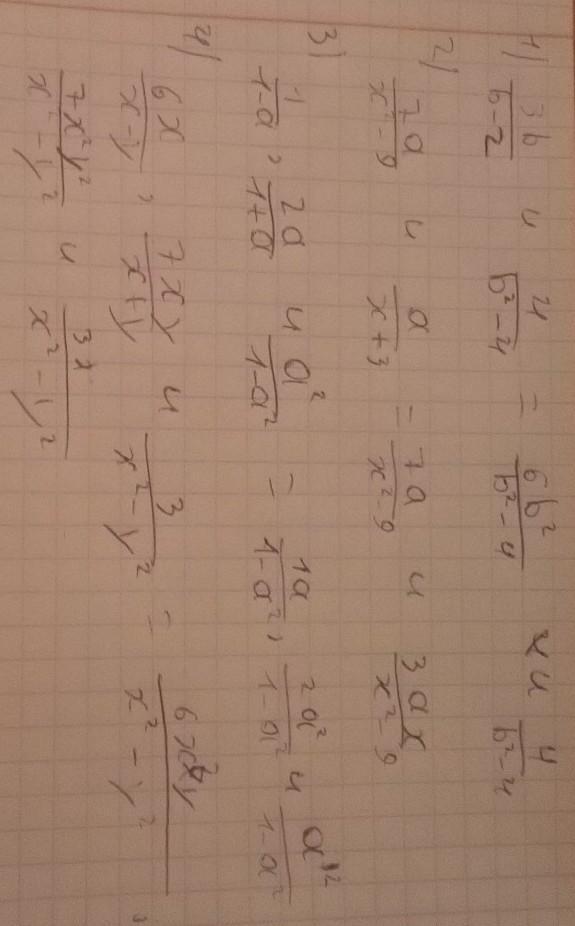 1) 3b/(b-2) и 4/(b²-4) = 6b²/(b²-4) и 4/(b²-4)
2) 7a/(x²-9) и a/(x+3) = 7a/(x²-9) и 3ax/(x²-9)
3) 1/(1-a), 2a/(1+a) и a²/(1-a²) = 1a/(1-a²), 2a²/(1-a²) и a²/(1-a²)
4) 6x/(x-y), 7xy/(x+y) и 3/(x²-y²) = 6x²y/(x²-y²),
7x²y²/(x²-y²) и 3x/(x²-y²)